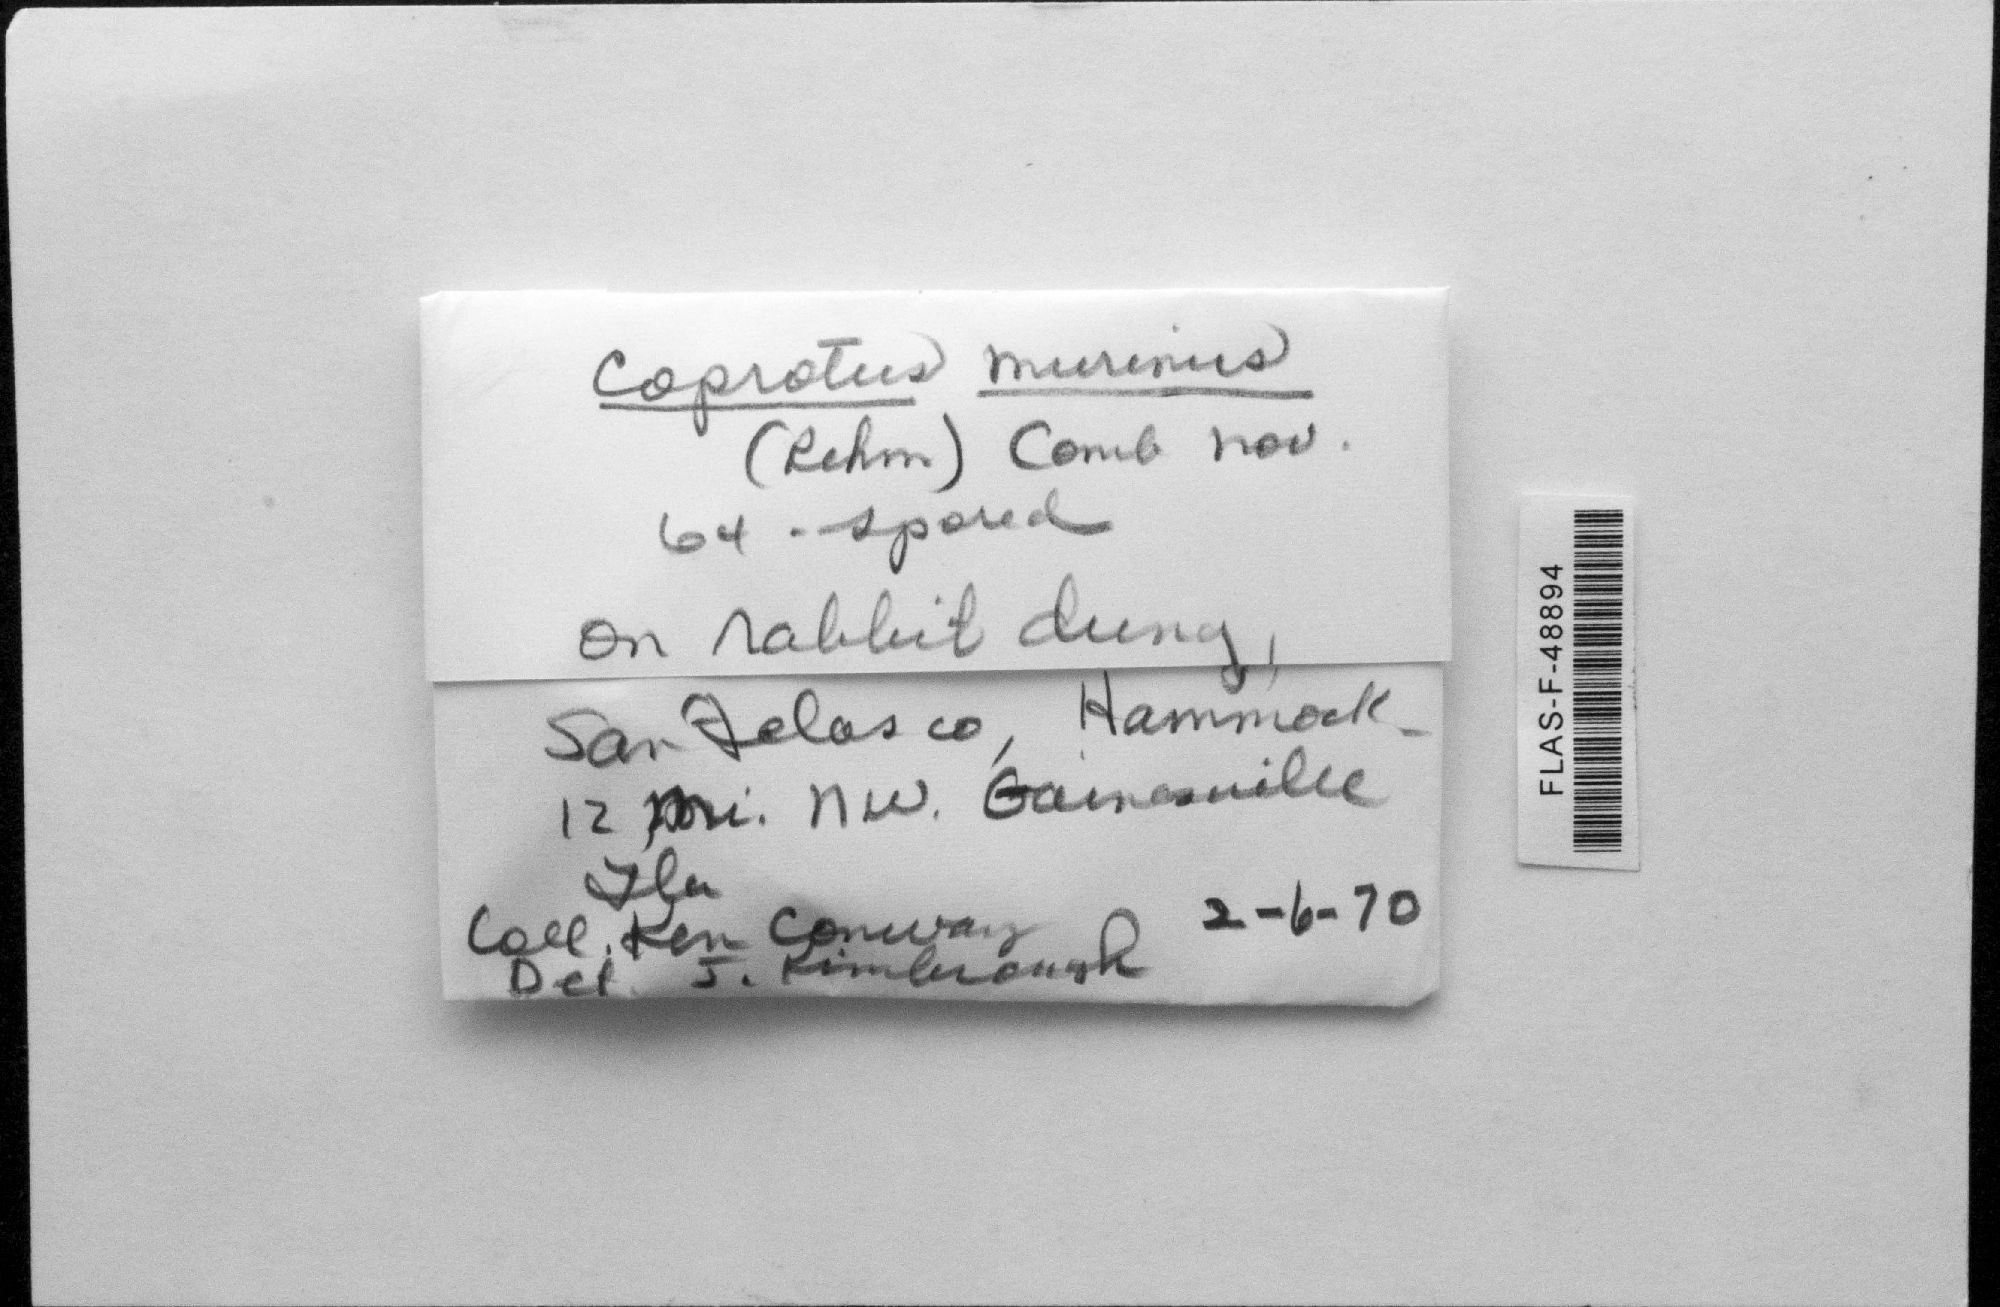 Coprotus murinus
(Rehm) Comb nov.
64 - spored
on rabbit dung,
San Felasco, Hammock -
12 mi. NW. Gainesville
Fla
Coll. Ken Conway 2-6-70
Det. J. Kimbrough
FLAS-F-48894